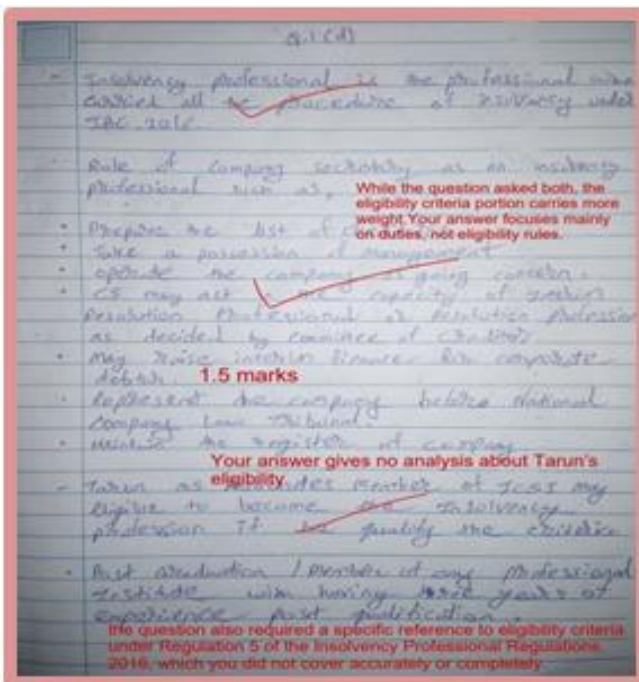 Q.1 (d)
- Insolvency professional is the professional who
carried all the procedure of insolvency under
IBC, 2016.
Role of company secretary as an insolvency
professional such as,
While the question asked both, the
eligibility criteria portion carries more
weight.Your answer focuses mainly
on duties, not eligibility rules.
• Prepare the list of
• Take a possession of management
• operate the company as going concern.
• CS may act in the capacity of
Resolution Professional or resolution profession
as decided by committee of creditors
• May raise interim finance for corporate
debtor.
1.5 marks
• Represent the company before National
Company Law Tribunal.
• the register of company
Your answer gives no analysis about Tarun's
eligibility.
- Tarun as member of ICSI may
eligible to become the Insolvency
profession if he qualify the criteria
• Post graduation / member of any professional
institute with having three years of
experience post
the question also required a specific reference to eligibility criteria
under Regulation 5 of the Insolvency Professional Regulations,
2016, which you did not cover accurately or completely